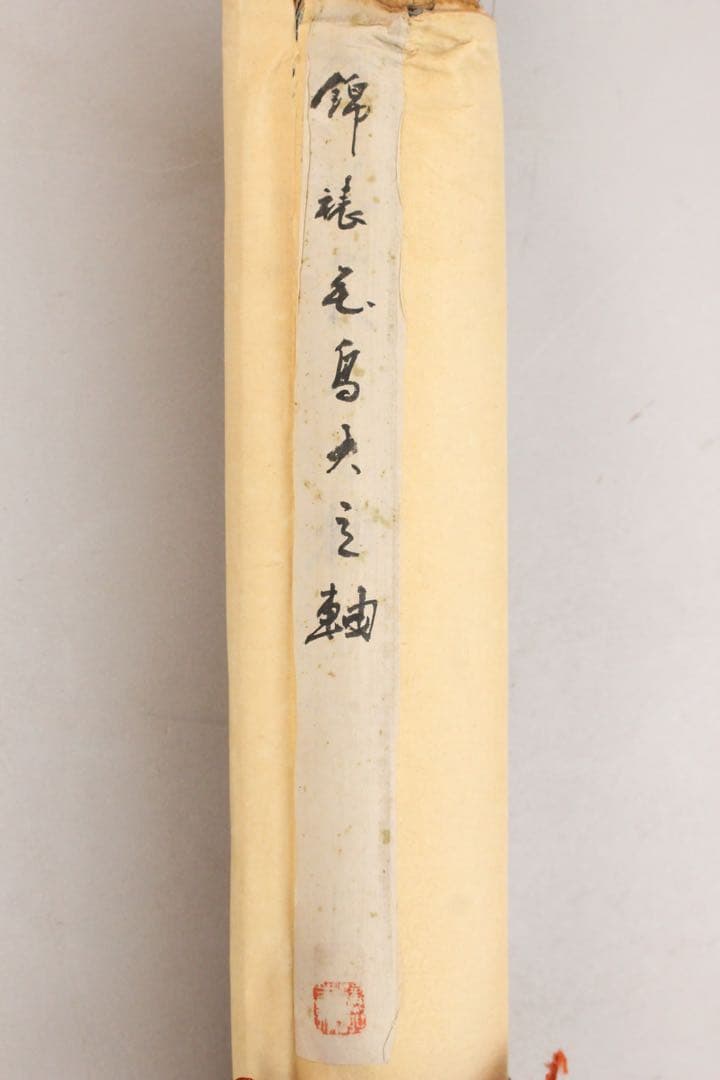 錦裱花鳥大立軸